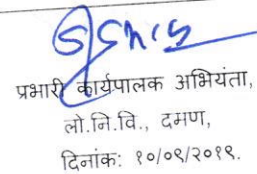 प्रभारी कार्यपालक अभियंता,
लो.नि.वि., दमण,
दिनांक: १०/०९/२०१९.